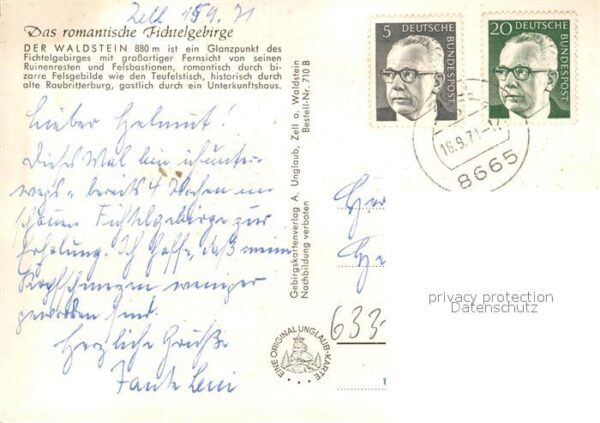 Zell 15.9.71
Das romantische Fichtelgebirge
DER WALDSTEIN 880 m ist ein Glanzpunkt des
Fichtelgebirges mit großartiger Fernsicht von seinen
Ruinenresten und Felsbastionen, romantisch durch bi-
zarre Felsgebilde wie den Teufelstisch, historisch durch
alte Raubritterburg, gastlich durch ein Unterkunftshaus.
Lieber Helmut!
Dieses Mal bin ich unter-
wegs, bereits 4 Wochen im
schönen Fichtelgebirge zur
Erholung. Ich hoffe, daß meine
Kopfschmerzen weniger
geworden sind.
Herzliche Grüße
Tante Leni
Gebirgskartenverlag A. Unglaub, Zell a. Waldstein
Nachbildung verboten Bestell-Nr. 710 B
EINE ORIGINAL UNGLAUB-KARTE
5
DEUTSCHE
BUNDESPOST
20
DEUTSCHE
BUNDESPOST
16.9.71
8665
633
privacy protection
Datenschutz